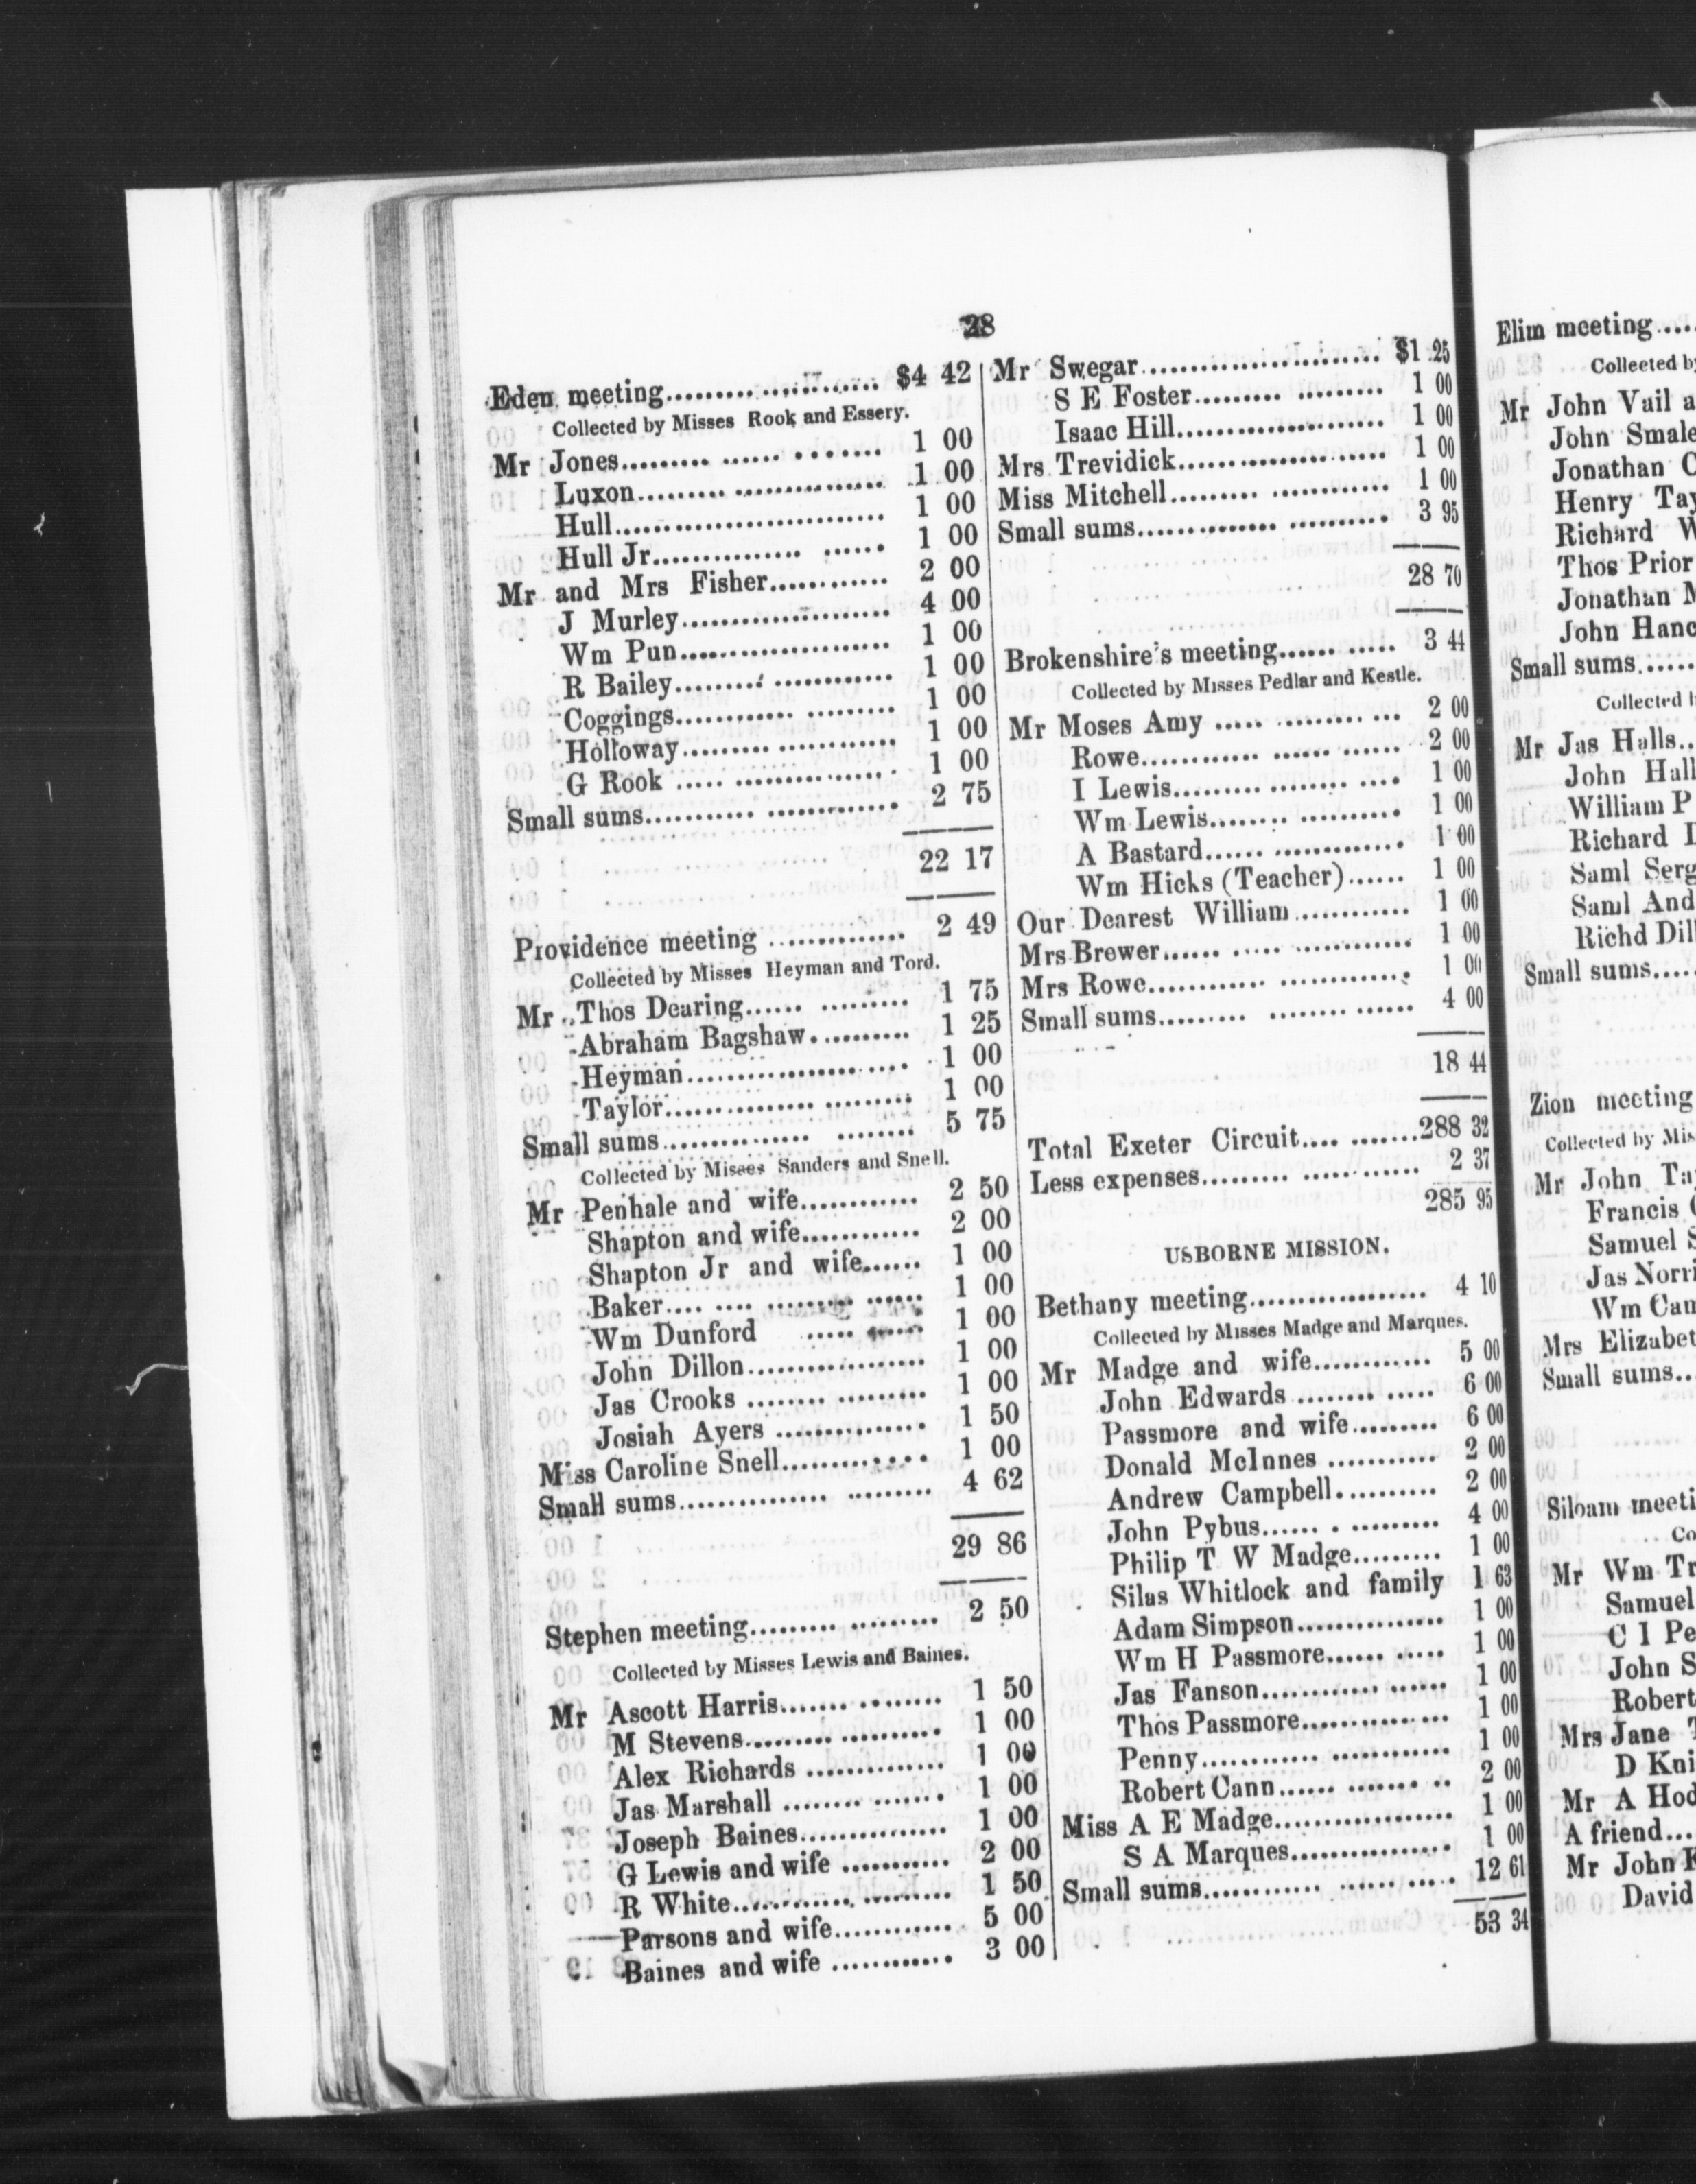 28
Eden meeting.................... $4 42
Collected by Misses Rook and Essery.
Mr Jones.................... 1 00
Luxon.................... 1 00
Hull.................... 1 00
Hull Jr.................... 1 00
Mr and Mrs Fisher............ 2 00
J Murley.................... 4 00
Wm Pun.................... 1 00
R Bailey.................... 1 00
Coggings.................... 1 00
Holloway.................... 1 00
G Rook.................... 1 00
Small sums.................... 2 75
22 17
Providence meeting .............. 2 49
Collected by Misses Heyman and Tord.
Mr Thos Dearing............... 1 75
Abraham Bagshaw.......... 1 25
Heyman.................... 1 00
Taylor.................... 1 00
Small sums.................... 5 75
Collected by Misses Sanders and Snell.
Mr Penhale and wife............ 2 50
Shapton and wife............ 2 00
Shapton Jr and wife...... 1 00
Baker.................... 1 00
Wm Dunford .......... 1 00
John Dillon.................. 1 00
Jas Crooks .................. 1 00
Josiah Ayers ............... 1 50
Miss Caroline Snell............ 1 00
Small sums.................... 4 62
29 86
Stephen meeting.................. 2 50
Collected by Misses Lewis and Baines.
Mr Ascott Harris............... 1 50
M Stevens.................. 1 00
Alex Richards .............. 1 00
Jas Marshall ............... 1 00
Joseph Baines............... 1 00
G Lewis and wife ........... 2 00
R White..................... 1 50
Parsons and wife............ 5 00
Baines and wife ............ 3 00
Mr Swegar.................... $1 25
S E Foster.................. 1 00
Isaac Hill.................... 1 00
Mrs Trevidick.................... 1 00
Miss Mitchell.................... 1 00
Small sums.................... 3 95
28 70
Brokenshire's meeting........... 3 44
Collected by Misses Pedlar and Kestle.
Mr Moses Amy ................. 2 00
Rowe.................... 2 00
I Lewis.................... 1 00
Wm Lewis.................. 1 00
A Bastard.................. 1 00
Wm Hicks (Teacher)...... 1 00
Our Dearest William............ 1 00
Mrs Brewer.................... 1 00
Mrs Rowe.................... 1 00
Small sums.................... 4 00
18 44
Total Exeter Circuit........... 288 32
Less expenses.................... 2 37
285 95
USBORNE MISSION.
Bethany meeting.................. 4 10
Collected by Misses Madge and Marques.
Mr Madge and wife............ 5 00
John Edwards .............. 6 00
Passmore and wife......... 6 00
Donald McInnes ........... 2 00
Andrew Campbell.......... 2 00
John Pybus................ 4 00
Philip T W Madge......... 1 00
Silas Whitlock and family 1 63
Adam Simpson............... 1 00
Wm H Passmore........... 1 00
Jas Fanson.................. 1 00
Thos Passmore............... 1 00
Penny.................... 1 00
Robert Cann............... 2 00
Miss A E Madge.................. 1 00
S A Marques................ 1 00
Small sums.................... 12 61
53 34
Elim meeting....
Collected by
Mr John Vail a
John Smale
Jonathan C
Henry Tay
Richard W
Thos Prior
Jonathan M
John Hanc
Small sums.....
Collected
Mr Jas Halls..
John Hall
William P
Richard
Saml Serg
Saml And
Richd Dil
Small sums.....
Zion meeting
Collected by Mis
Mr John Ta
Francis
Samuel S
Jas Norri
Wm Can
Mrs Elizabet
Small sums...
Siloam meeti
Co
Mr Wm Tr
Samuel
C I Pe
John S
Robert
Mrs Jane
D Kni
Mr A Hod
A friend...
Mr John
David